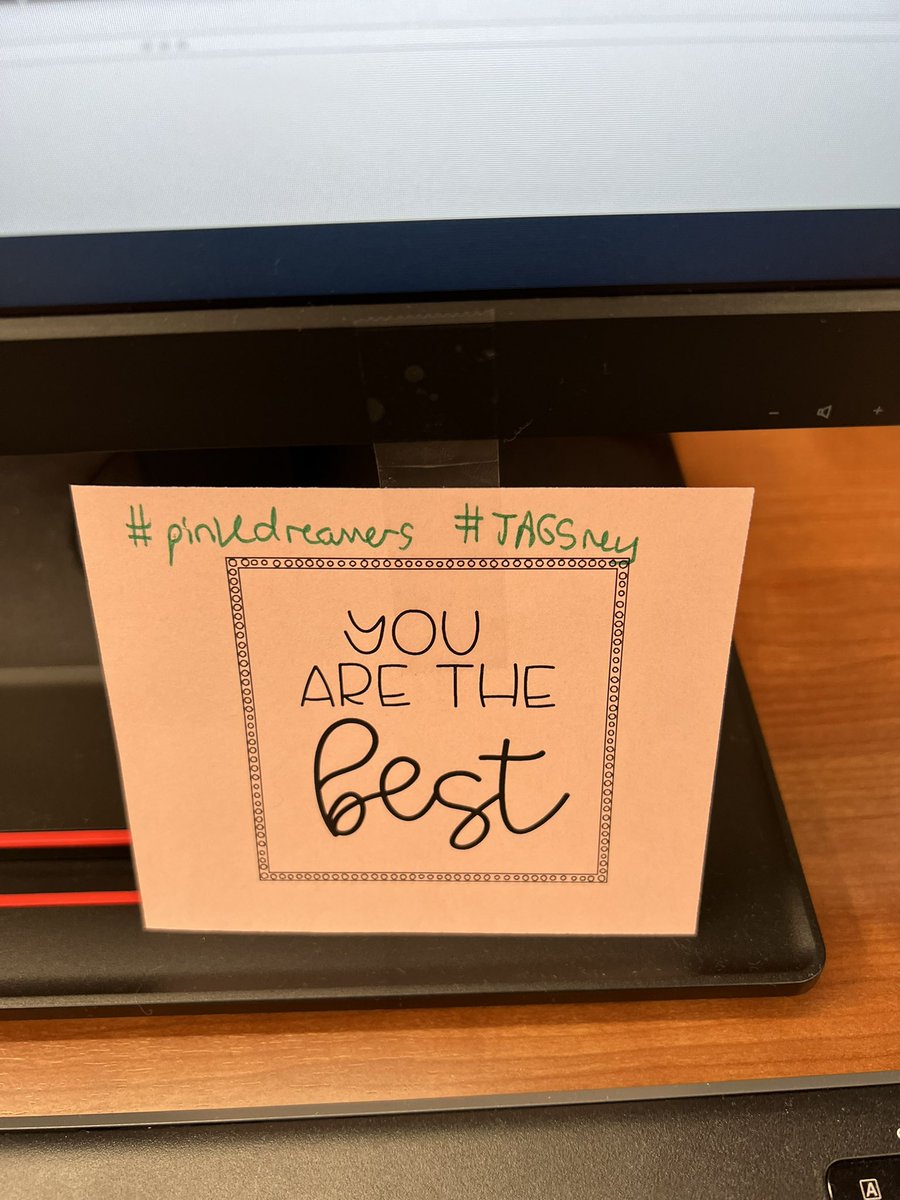 #pinkdreamers #JAGSrey
YOU
ARE THE
best
A